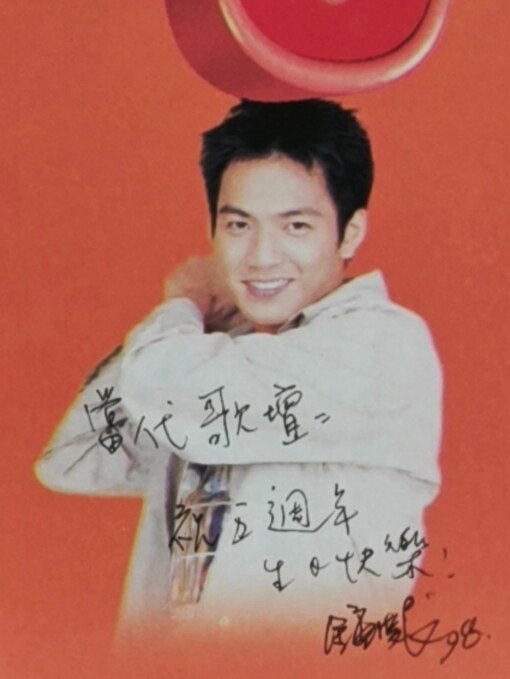 當代歌壇：
祝五週年
生日快樂！
98.